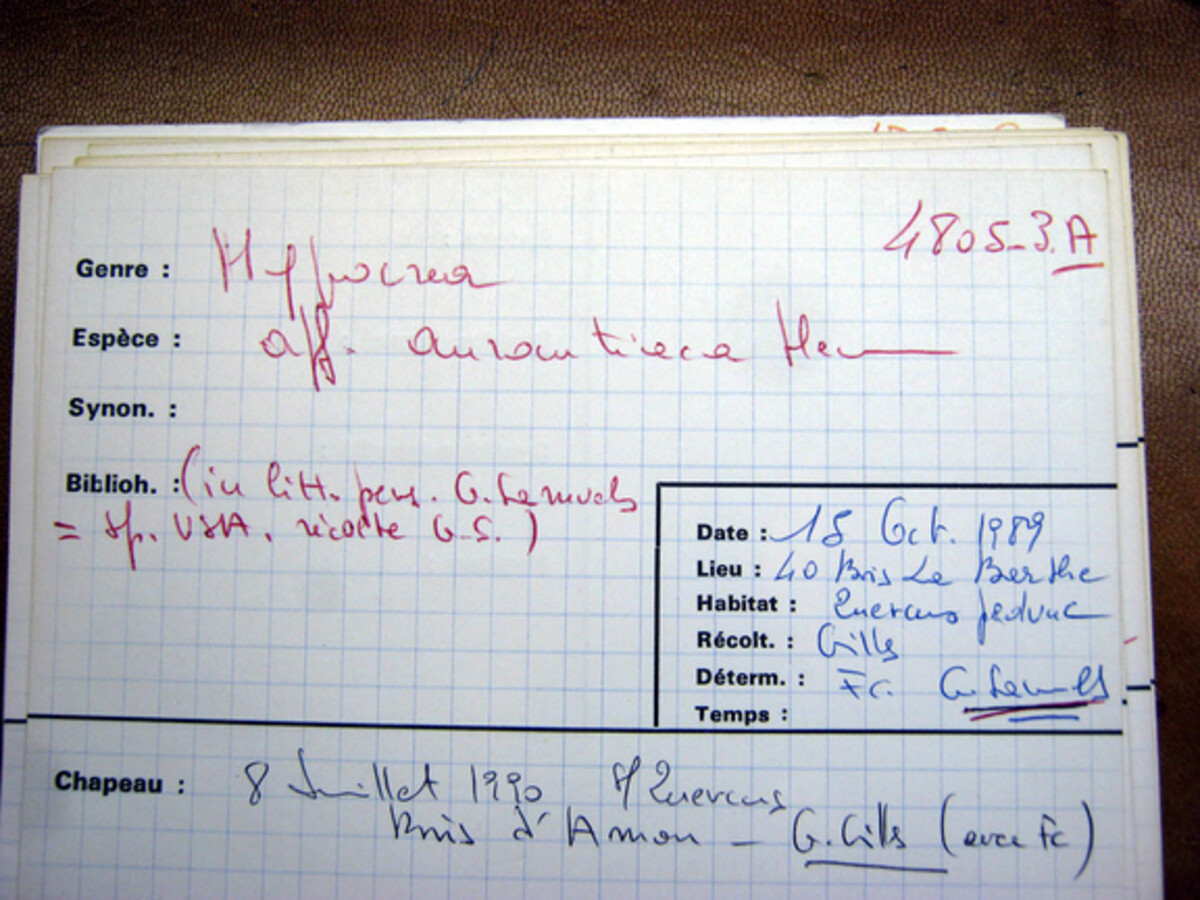 4805-3.A
Genre : Hypocrea
Espèce : aff. aurantiaca Hen
Synon. :
Biblioh. : (in litt. pers. G. Samuels
= sp. USA. récolte G.S.)
Date : 15 Oct. 1989
Lieu : 40 Bois La Barthe
Habitat : Quercus pedunc
Récolt. : Gilles
Déterm. : Fc. G. Samuels
Temps :
Chapeau : 8 Juillet 1990 s/ Quercus
Bois d'Amou - G. Gilles (avec Fc)